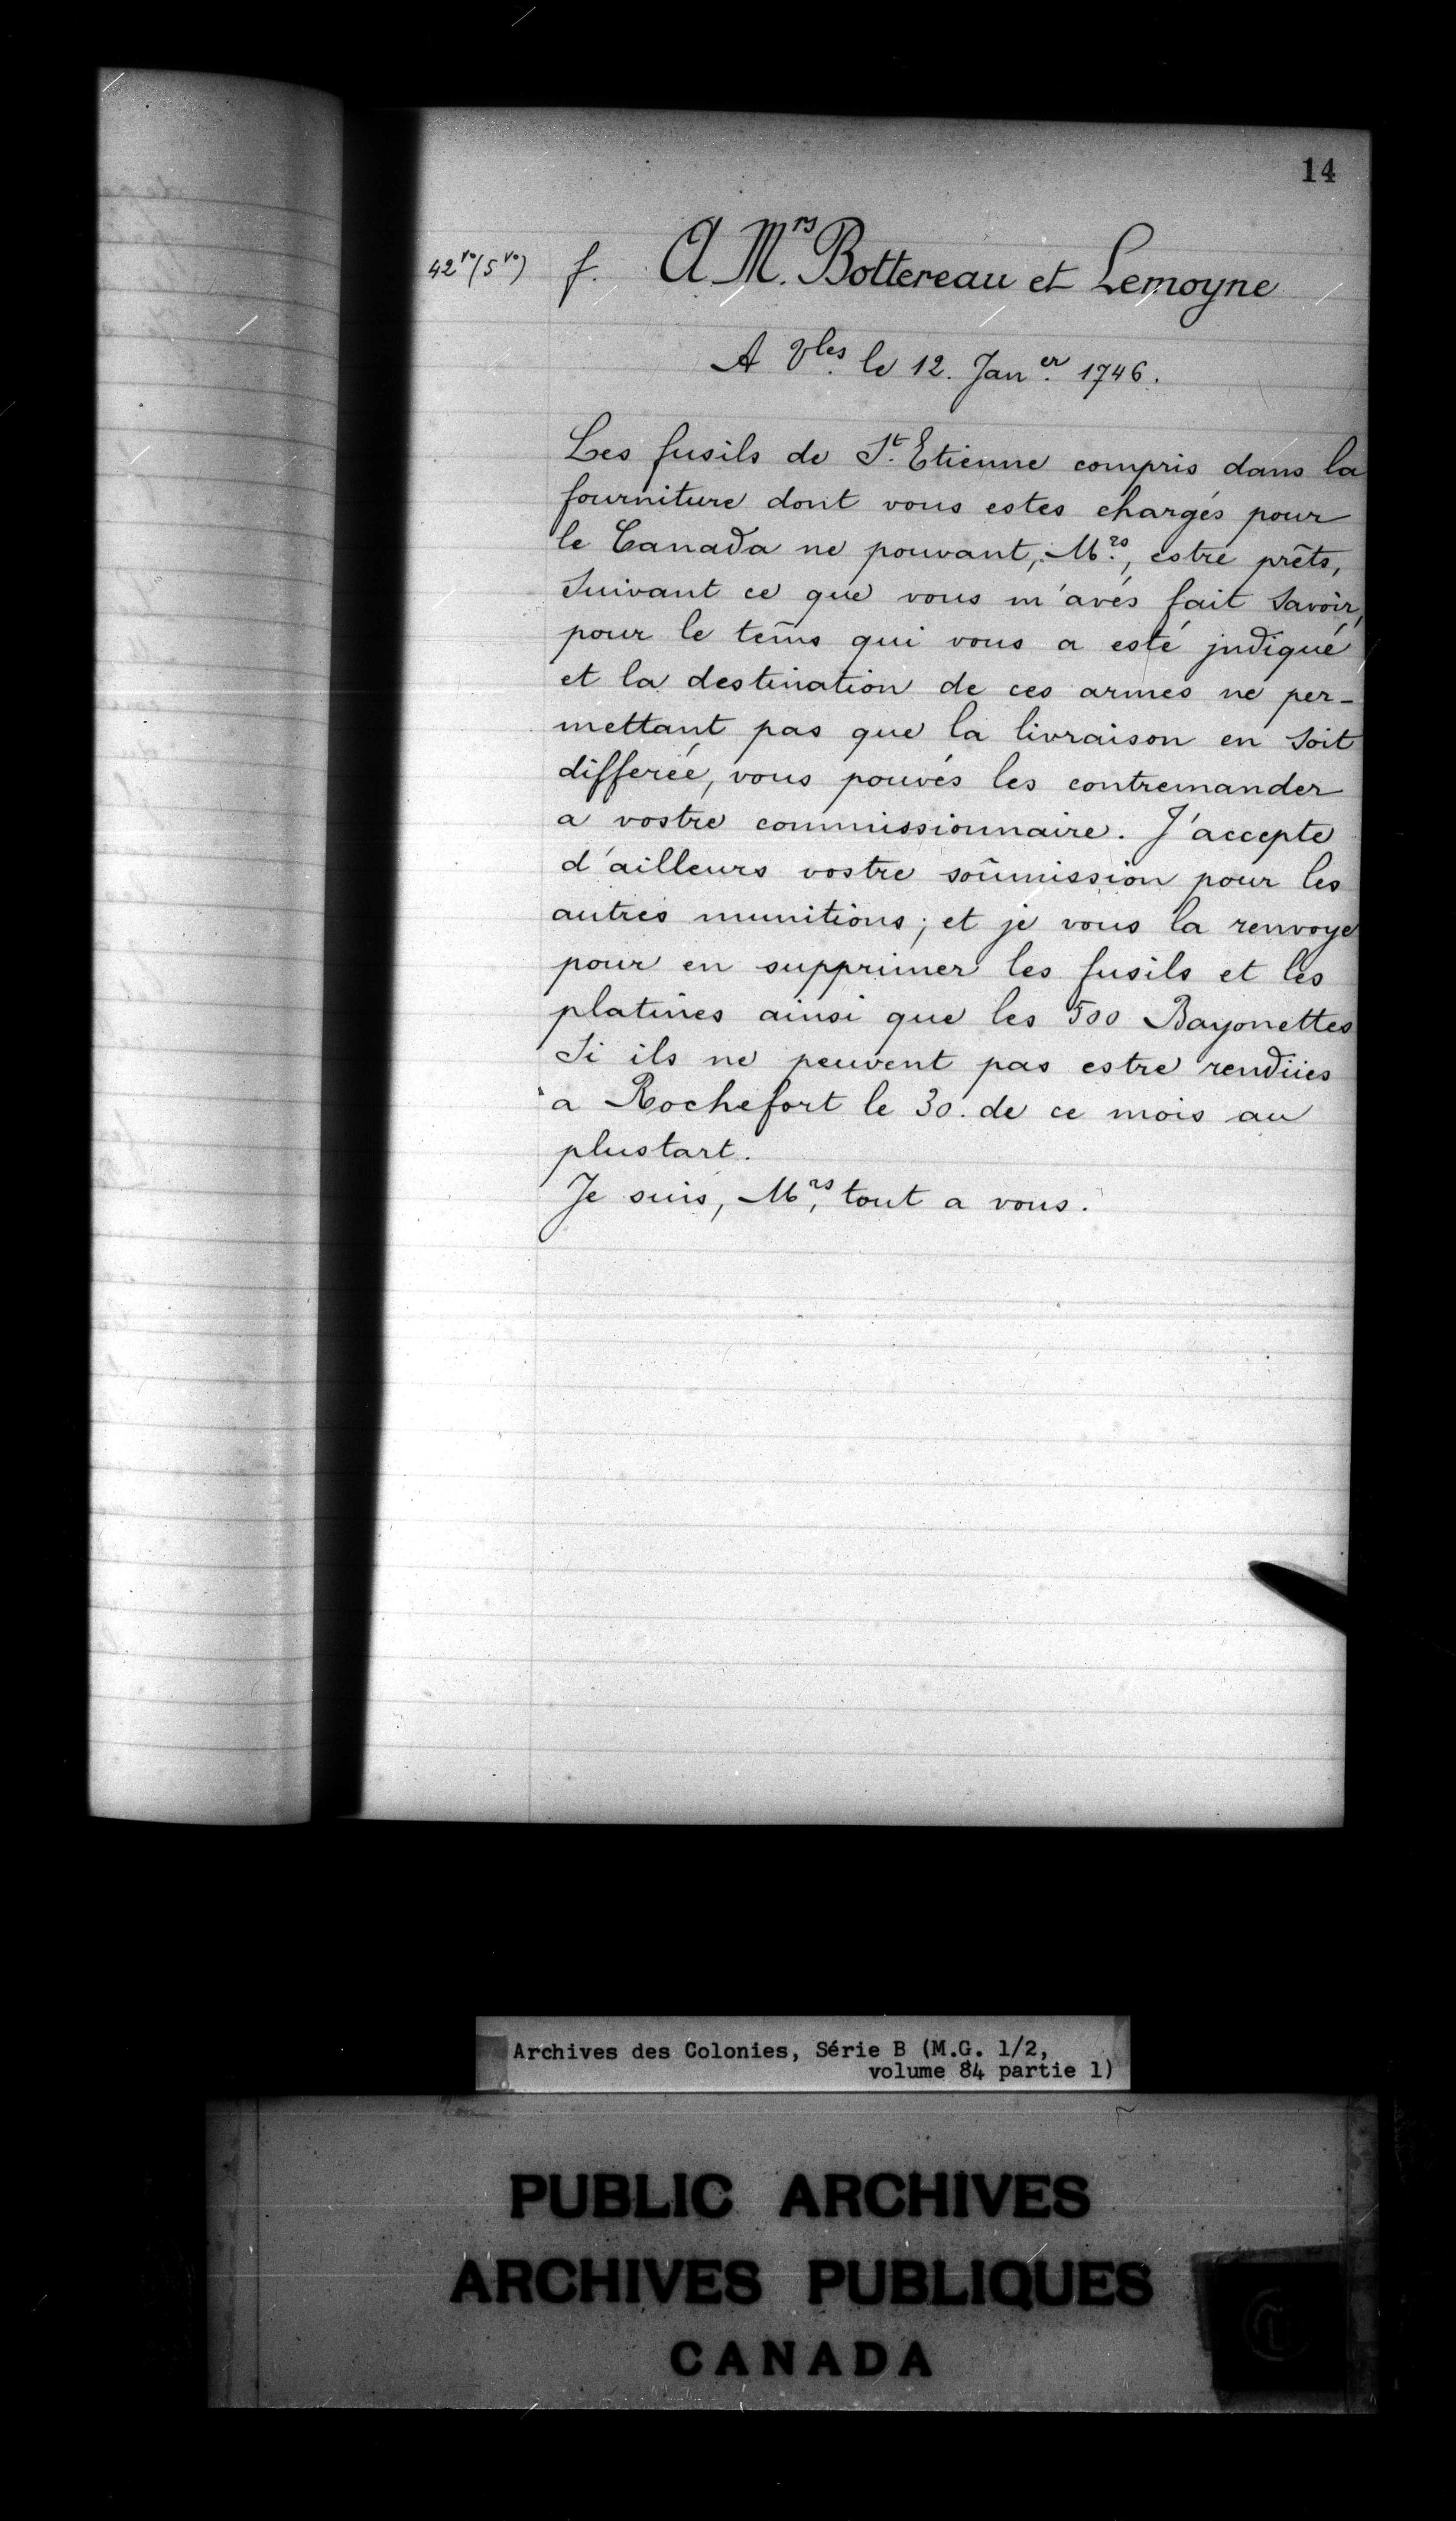 14
42ro (5vo) f. A Mrs. Bottereau et Lemoyne
A Vles. le 12. Janer. 1746.
Les fusils de St. Etienne compris dans la
fourniture dont vous estes chargés pour
le Canada ne pouvant, Mrs., estre prêts,
Suivant ce que vous m'avés fait Savoir,
pour le tem̃s qui vous a esté jndiqué
et la destination de ces armes ne per-
mettant pas que la livraison en Soit
differée, vous pouvés les contremander
a vostre commissionnaire. J'accepte
d'ailleurs vostre soûmission pour les
autres munitions; et je vous la renvoye
pour en supprimer les fusils et les
platines ainsi que les 500 Bayonettes
Si ils ne peuvent pas estre rendües
a Rochefort le 30. de ce mois au
plustart.
Je suis, Mrs., tout a vous.
Archives des Colonies, Série B (M.G. 1/2,
volume 84 partie 1)
PUBLIC ARCHIVES
ARCHIVES PUBLIQUES
CANADA